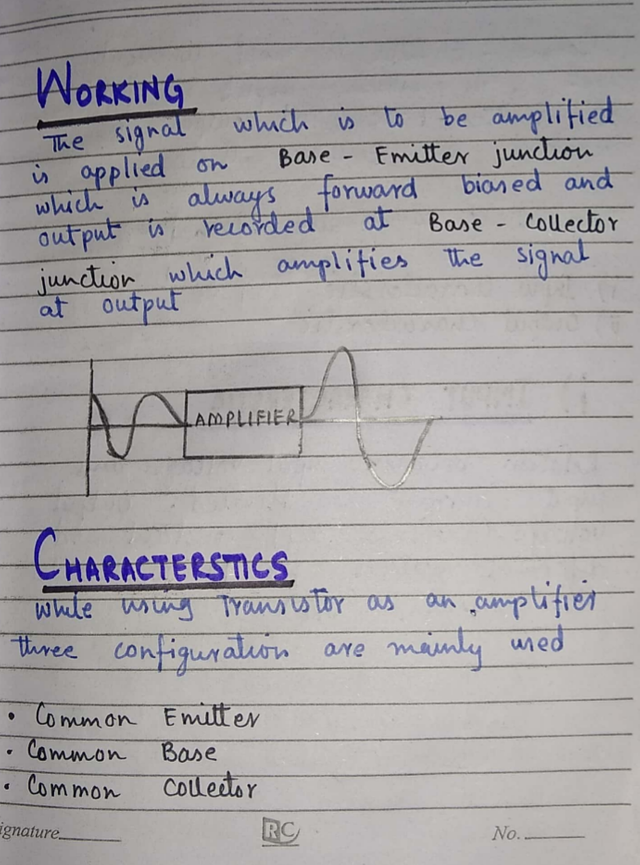 WORKING
The signal which is to be amplified
is applied on Base - Emitter junction
which is always forward biased and
output is recorded at Base - Collector
junction which amplifies the signal
at output
AMPLIFIER
CHARACTERSTICS
while using Transistor as an amplifier
three configuration are mainly used
• Common Emitter
• Common Base
• Common Collector
ignature
RC
No.